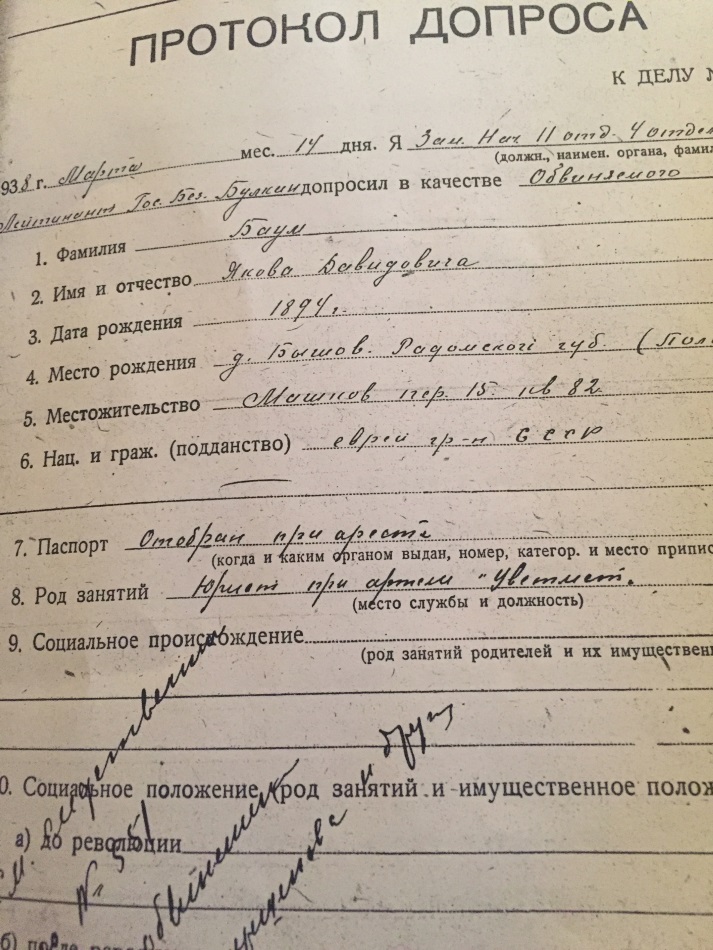 ПРОТОКОЛ ДОПРОСА
К ДЕЛУ №
1938 г. Марта мес. 14 дня. Я Зам. Нач 11 отд. 4 отдел
(должн., наимен. органа, фамил
Лейтинант Гос. Без. Булкин допросил в качестве Обвиняемого
1. Фамилия Баум
2. Имя и отчество Якова Давидовича
3. Дата рождения 1894 г.
4. Место рождения д. Бышов. Радомской губ. (Пол
5. Местожительство Машков пер. 15 кв 82
6. Нац. и граж. (подданство) еврей гр-н СССР
7. Паспорт Отобран при аресте
(когда и каким органом выдан, номер, категор. и место припис
8. Род занятий Юрист при артели "Цветмет".
(место службы и должность)
9. Социальное происхождение
(род занятий родителей и их имуществен
0. Социальное положение (род занятий и имущественное полож
а) до революции
б) после
см.
№
и друг